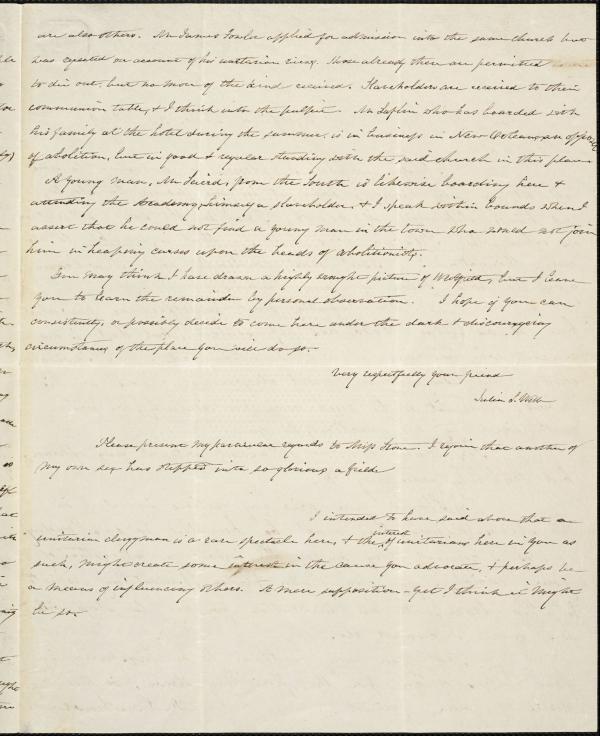 are also others. Mr James Fowler applied for admission into the same church but
was rejected on account of his unitarian views. Those already there are permitted
to die out, but no more of the kind received. Slaveholders are received to their
communion table, & I think into the pulpit. Mr Laflin who has boarded with
his family at the hotel during the summer, is in business in New Orleans, an opposer
of abolition, but in good & regular standing with the said church in this place
A young man, Mr Laird, from the South is likewise boarding here &
attending the Academy, himself a slaveholder, & I speak within bounds when I
assert that he could not find a young man in the town who would not join
him in heaping curses upon the heads of abolitionists.
You may think I have drawn a highly wrought picture of Westfield, but I leave
you to learn the remainder by personal observation. I hope if you can
consistently, or possibly decide to come here under the dark & discouraging
circumstances of the place you will do so.
Very respectfully your friend
Please present my particular regards to Miss Stone. I rejoice that another of
my own sex has stepped into so glorious a field
I intended to have said above that an
unitarian clergyman is a rare spectacle here, & the interest of unitarians here in you as
such, might create some interest in the cause you advocate, & perhaps be
a means of influencing others. A mere supposition - yet I think it might
be so.